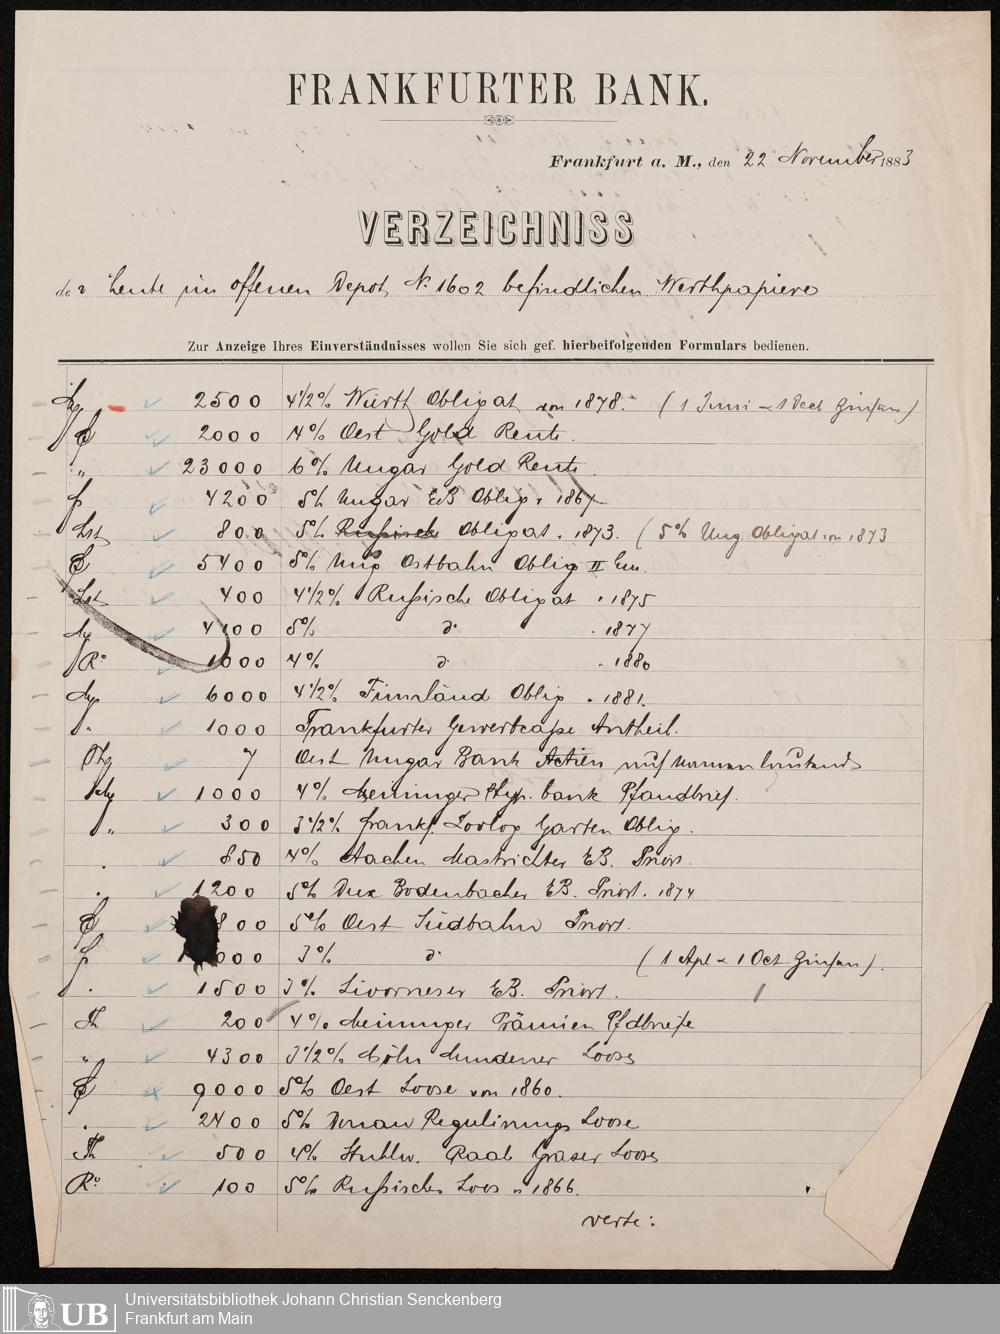 FRANKFURTER BANK.
Frankfurt a. M., den 22 November 1883
VERZEICHNISS
der heute im offenen Depot N. 1602 befindlichen Werthpapiere
Zur Anzeige Ihres Einverständnisses wollen Sie sich gef. hierbeifolgenden Formulars bedienen.
2500 4 1/2% Württ Obligat von 1878. (1 Juni u 1 Dect Zinsen)
2000 4% Oest Gold Rente.
" 23000 6% Ungar Gold Rente.
f 4200 5% Ungar EB Oblig. 1867
Lst 800 5% Russisch Obligat. 1873. (5% Ung. Obligat von 1873
5400 5% Ung Ostbahn Oblig II Em.
Lst 400 4 1/2% Russische Obligat " 1875
4100 5% d. " 1877
Ro 1000 4% d. " 1880
6000 4 1/2% Finnländ Oblig " 1881.
" 1000 Frankfurter Gewerbcasse Antheil.
7 Oest Ungar Bank Actien auf Namen lautend
1000 4% Meininger Hyp. bank Pfandbrief.
" 300 3 1/2% Frankf. Zoolog Garten Oblig.
. 850 4% Aachen Mastrichter EB. Priort.
. 1200 5% Dux Bodenbacher EB. Priort. 1874
800 5% Oest Südbahn Priort.
f 000 3% d. (1 Apl u 1 Oct Zinsen).
. 1500 3% Livorneser EB. Priort.
Th 200 4% Meininger Prämien Pfdbriefe
" 4300 3 1/2% Cöln Mindener Loose
9000 5% Oest Loose von 1860.
. 2400 5% Donau Regulirungs Loose
Th 500 4% Stuhlw. Raab Grazer Loose
Ro 100 5% Russisches Loos " 1866.
verte:
UB Universitätsbibliothek Johann Christian Senckenberg
Frankfurt am Main